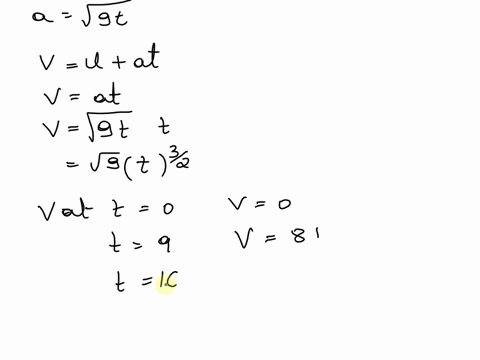 a = √9t
V = u + at
V = at
V = √9t t
= √9 (t)^3/2
V at t = 0 V = 0
t = 9 V = 81
t =